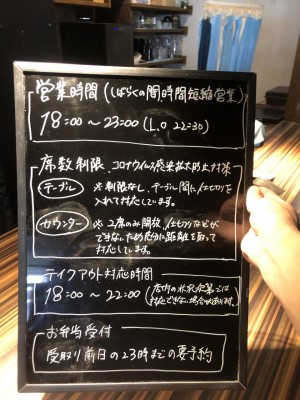 営業時間(しばらくの間)時間短縮営業)
18:00〜23:00(L.O 22:30)
席数制限、コロナウイルス感染拡大防止対策
テーブル ※制限なし、テーブル間に仕切りを
入れて対応しています。
カウンター ※2席のみ開放、仕切りなどが
できないため充分に距離を取って
対応しています。
テイクアウト対応時間
18:00〜22:00(店内の状況次第では
対応できない場合があります。)
お弁当受付
受取り前日の23時までの要予約